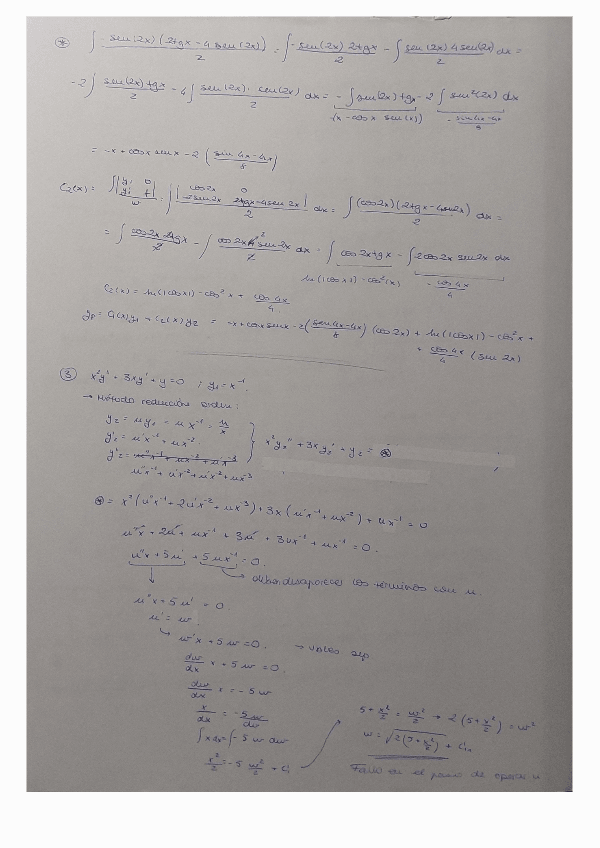 ⊛ ∫ -sen(2x)(2tgx - 4 sen(2x)) / 2 = ∫ -sen(2x) 2tgx / 2 - ∫ sen(2x) 4sen(2x) / 2 dx =
-2 ∫ sen(2x) tgx / 2 - 4 ∫ sen(2x) · sen(2x) / 2 dx = - ∫ sen(2x) tgx - 2 ∫ sen²(2x) dx
(x - cosx sen(x)) - sin4x-4x / 8
= -x + cosx senx - 2 ( sin 4x - 4x / 8 )
C₂(x) = ∫ |y₁ 0 y₁' f| / w = ∫ |cos2x 0 -2sen2x 2tgx-4sen2x| / 2 dx = ∫ (cos2x)(2tgx-4sen2x) / 2 dx =
= ∫ cos2x 2tgx / 2 - ∫ cos2x 4 2 sen2x / 2 dx = ∫ cos2x tgx - ∫ 2cos2x sen2x dx
ln(|cosx|) - cos²(x) - cos4x / 4
C₂(x) = ln(|cosx|) - cos²x + cos4x / 4
yp = C₁(x)y₁ + C₂(x)y₂ = -x + cosx senx - 2( sen4x-4x / 8 ) (cos2x) + ln(|cosx|) - cos²x +
+ cos4x / 4 (sin 2x)
③ x²y'' + 3xy' + y = 0 ; y₁ = x⁻¹
→ Método reducción orden:
y₂ = uy₁ = u x⁻¹ = u/x
y₂' = u'x⁻¹ + ux⁻²
x²y₂'' + 3xy₂' + y₂ = ⊛
y₂'' =
u''x⁻¹ + u'x⁻² + u'x⁻² + ux⁻³
⊛ = x²(u''x⁻¹ + 2u'x⁻² + ux⁻³) + 3x(u'x⁻¹ + ux⁻²) + ux⁻¹ = 0
u''x + 2u' + ux⁻¹ + 3u' + 3ux⁻¹ + ux⁻¹ = 0.
u''x + 5u' + 5ux⁻¹ = 0.
deben desaparecer los términos con u.
u''x + 5u' = 0
u' = w.
↳ w'x + 5w = 0. → vbles sep
dw/dx x + 5w = 0.
dw/dx x = -5w
x/dx = -5w/dw
∫ x dx = ∫ -5 w dw
x²/2 = -5 w²/2 + C₁
5 + x²/2 = w²/2 → 2(5 + x²/2) = w²
w = √2(5 + x²/2) + C₁